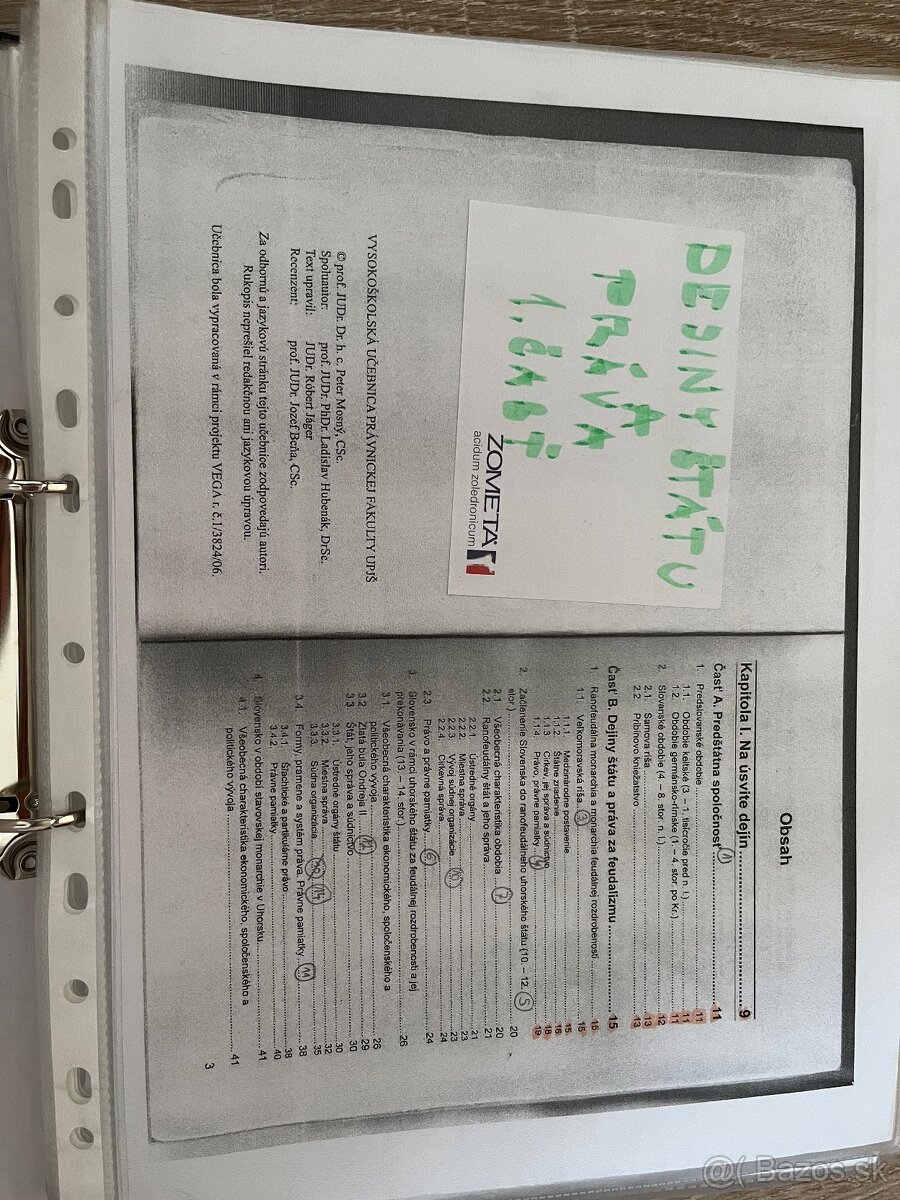 DEJINY ŠTÁTU
A
PRÁVA
1. ČASŤ
ZOMETA
acidum zoledronicum
VYSOKOŠKOLSKÁ UČEBNICA PRÁVNICKEJ FAKULTY UPJŠ
© prof. JUDr. Dr. h. c. Peter Mosný, CSc.
Spoluautor: prof. JUDr. PhDr. Ladislav Hubenák, DrSc.
Text upravil: JUDr. Róbert Jáger
Recenzent: prof. JUDr. Jozef Beňa, CSc.
Za odbornú a jazykovú stránku tejto učebnice zodpovedajú autori.
Rukopis neprešiel redakčnou ani jazykovou úpravou.
Učebnica bola vypracovaná v rámci projektu VEGA r. č.1/3824/06.
Obsah
Kapitola I. Na úsvite dejín 9
Časť A. Predštátna spoločnosť 1 11
1. Predslovanské obdobie 11
1.1. Obdobie keltské (3. – 1. tisícročie pred n. l.) 11
1.2. Obdobie germánsko-rímske (1 – 4. stor. po Kr.) 11
2. Slovanské obdobie (4 – 8. stor. n. l.) 12
2.1 Samova ríša 13
2.2 Pribinovo kniežatstvo 13
Časť B. Dejiny štátu a práva za feudalizmu 15
1. Ranofeudálna monarchia a monarchia feudálnej rozdrobenosti 15
1.1. Veľkomoravská ríša 3 15
1.1.1 Medzinárodné postavenie 15
1.1.2. Štátne zriadenie 16
1.1.3. Cirkev, jej správa a súdnictvo 18
1.1.4. Právo a právne pamiatky 4 19
2. Začlenenie Slovenska do ranofeudálneho uhorského štátu (10. – 12. 5
stor.) 20
2.1 Všeobecná charakteristika obdobia 7 20
2.2. Ranofeudálny štát a jeho správa 21
2.2.1. Ústredné orgány 21
2.2.2. Miestna správa 23
2.2.3. Vývoj súdnej organizácie 10 23
2.2.4. Cirkevná správa 24
2.3. Právo a právne pamiatky 6 24
3. Slovensko v rámci Uhorského štátu za feudálnej rozdrobenosti a jej
prekonávania (13. – 14. stor.) 26
3.1. Všeobecná charakteristika ekonomického, spoločenského a
politického vývoja 26
3.2 Zlatá bula Ondreja II. 12 29
3.3 Štát, jeho správa a súdnictvo 30
3.3.1. Ústredné orgány štátu 30
3.3.2. Miestna správa 32
3.3.3. Súdna organizácia 14 35
3.4. Formy, pramene a systém práva. Právne pamiatky 11 38
3.4.1 Šľachtické a partikulárne právo 38
3.4.2. Právne pamiatky 40
4. Slovensko v období stavovskej monarchie v Uhorsku 41
4.1. Všeobecná charakteristika ekonomického, spoločenského a
politického vývoja 41
3
@( Bazos.sk